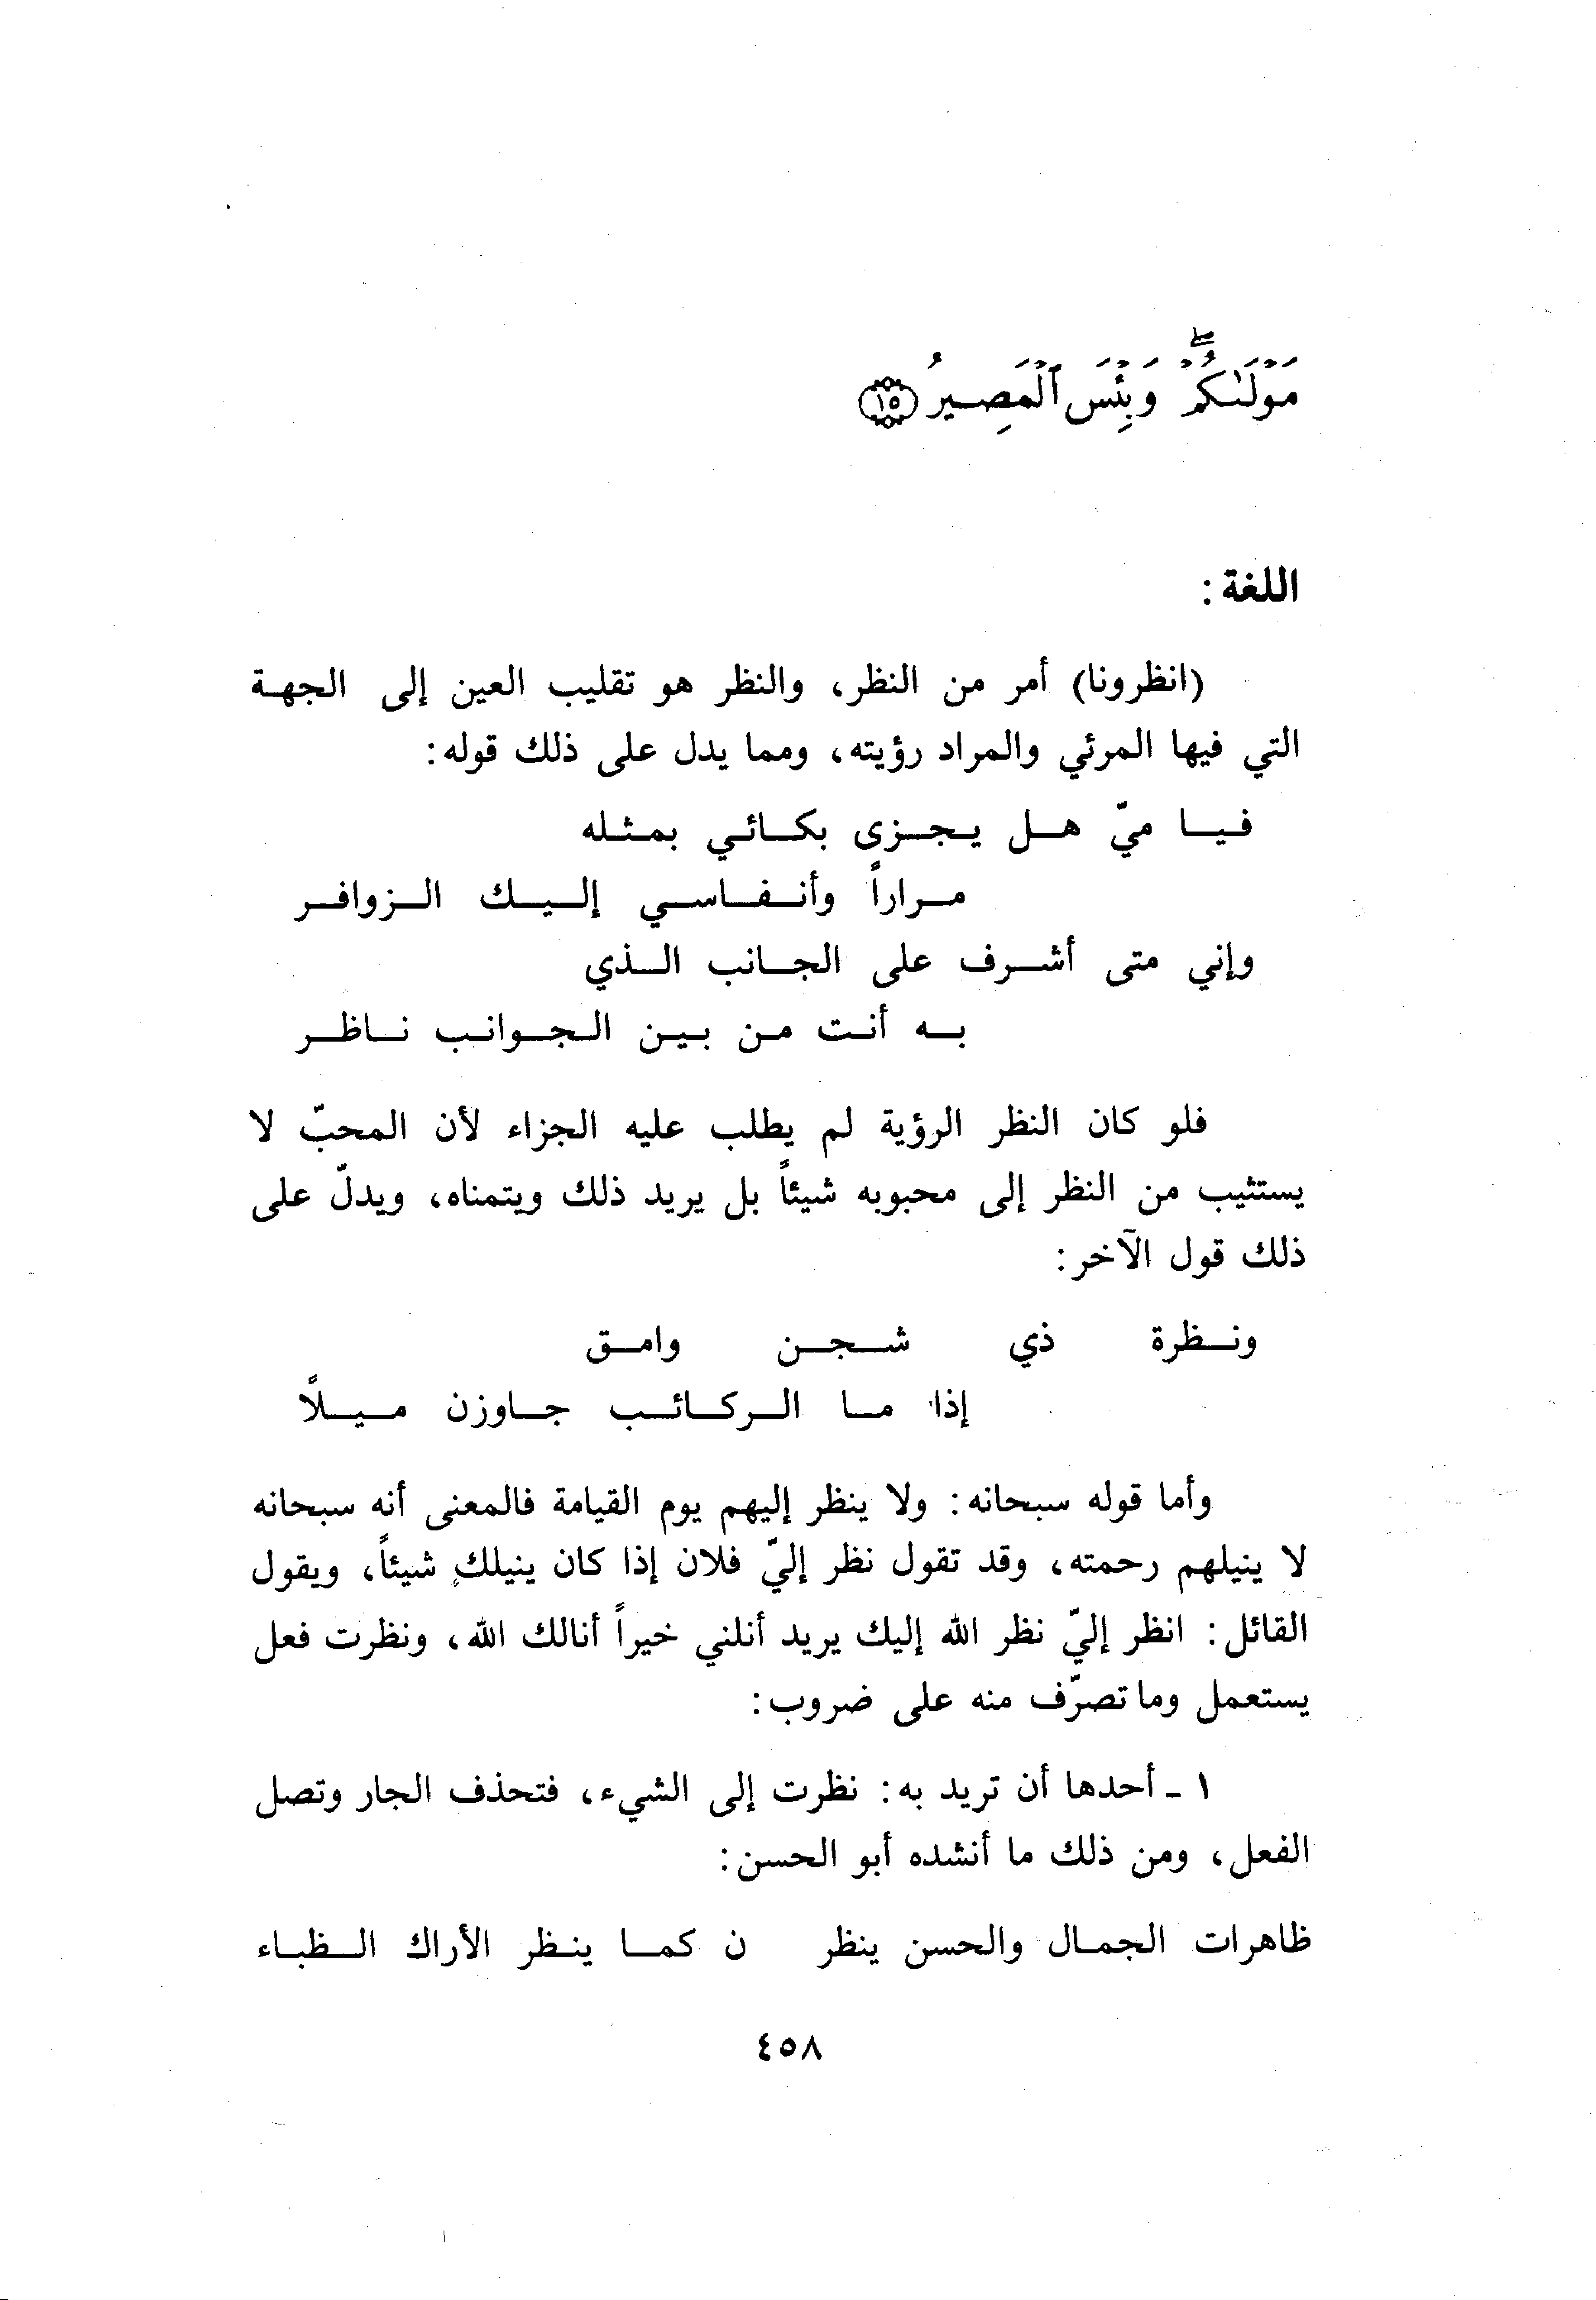 مَوْلَىٰكُمْ ۖ وَبِئْسَ ٱلْمَصِيرُ ﴿١٥﴾
اللغة :
(انظرونا) أمر من النظر، والنظر هو تقليب العين إلى الجهة
التي فيها المرئي والمراد رؤيته، ومما يدل على ذلك قوله:
فيا ميّ هل يجزى بكائي بمثله
مراراً وأنفاسي إليك الزوافر
وإني متى أشرف على الجانب الذي
به أنت من بين الجوانب ناظر
فلو كان النظر الرؤية لم يطلب عليه الجزاء لأن المحبّ لا
يستثيب من النظر إلى محبوبه شيئاً بل يريد ذلك ويتمناه، ويدلّ على
ذلك قول الآخر:
ونظرة ذي شجن وامق
إذا ما الركائب جاوزن ميلاً
وأما قوله سبحانه: ولا ينظر إليهم يوم القيامة فالمعنى أنه سبحانه
لا ينيلهم رحمته، وقد تقول نظر إليّ فلان إذا كان ينيلك شيئاً، ويقول
القائل: انظر إليّ نظر الله إليك يريد أنلني خيراً أنالك الله، ونظرت فعل
يستعمل وما تصرّف منه على ضروب:
١ - أحدها أن تريد به: نظرت إلى الشيء، فتحذف الجار وتصل
الفعل، ومن ذلك ما أنشده أبو الحسن:
ظاهرات الجمال والحسن ينظر ن كما ينظر الأراك الظباء
٤٥٨